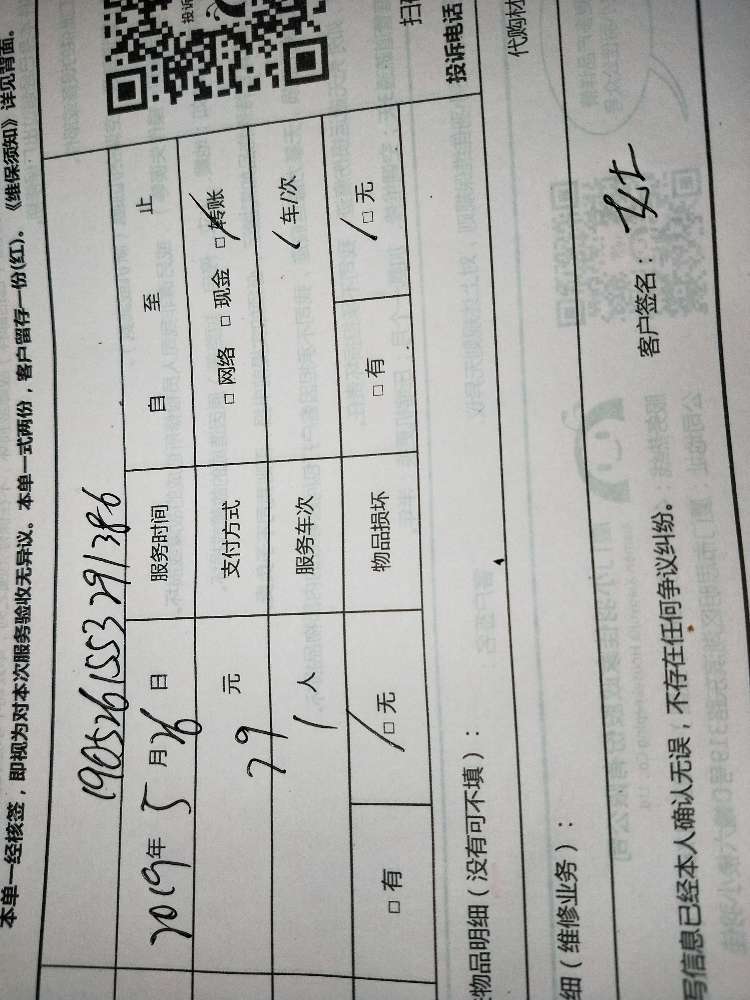 本单一经核签，即视为对本次服务验收无异议。本单一式两份，客户留存一份(红)。《维保须知》详见背面。
投诉
扫
投诉电话
代购材
1905261553291386
2019年5月26日 服务时间 自 至 止
79 元 支付方式 □ 网络 □ 现金 □ 转账
1 人 服务车次 1 车/次
□ 有 □ 无 物品损坏 □ 有 □ 无
物品明细（没有可不填）：
细（维修业务）：
客户签名：
写信息已经本人确认无误，不存在任何争议纠纷。